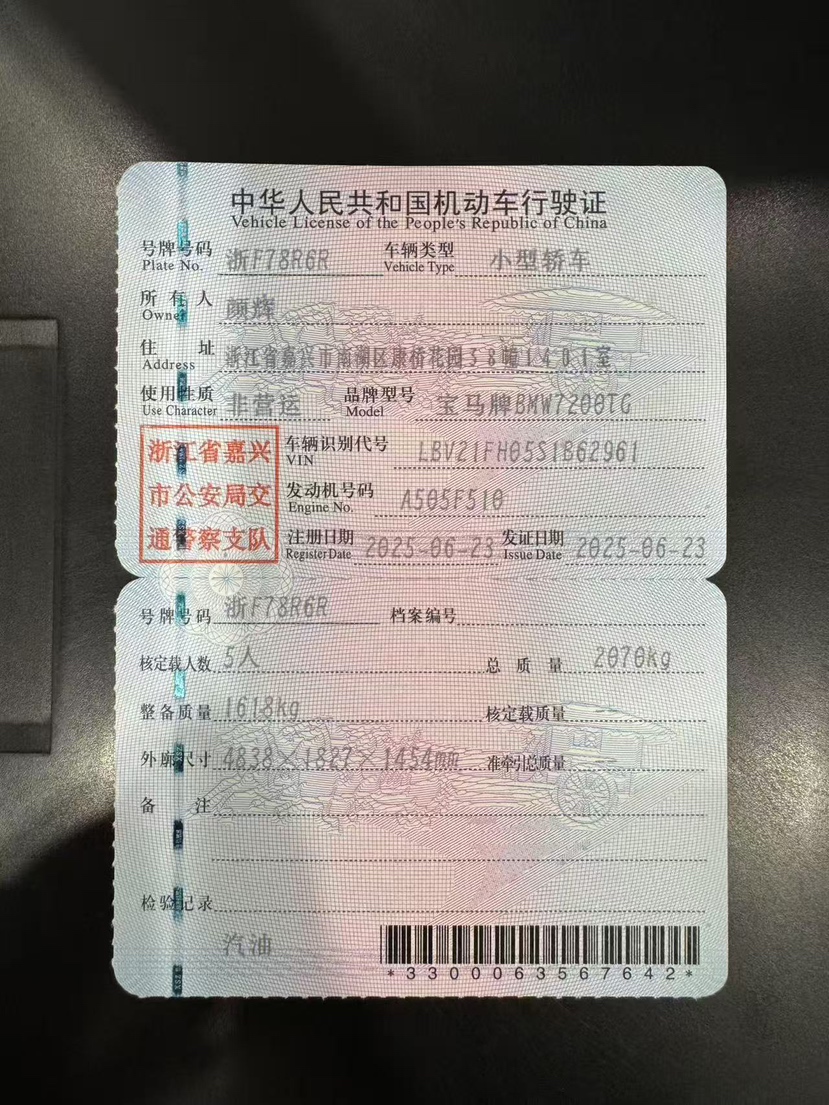 中华人民共和国机动车行驶证
Vehicle License of the People's Republic of China
号牌号码 浙F78R6R 车辆类型 小型轿车
Plate No. Vehicle Type
所有人 颜辉
Owner
住址 浙江省嘉兴市南湖区康桥花园38幢1401室
Address
使用性质 非营运 品牌型号 宝马牌BMW7200TG
Use Character Model
浙江省嘉兴
市公安局交
通警察支队
车辆识别代号 LBV21FH05S1B62961
VIN
发动机号码 A505F510
Engine No.
注册日期 2025-06-23 发证日期 2025-06-23
Register Date Issue Date
号牌号码 浙F78R6R 档案编号
核定载人数 5人 总质量 2070kg
整备质量 1618kg 核定载质量
外廓尺寸 4838×1827×1454mm 准牵引总质量
备注
检验记录
汽油
*3300063567642*